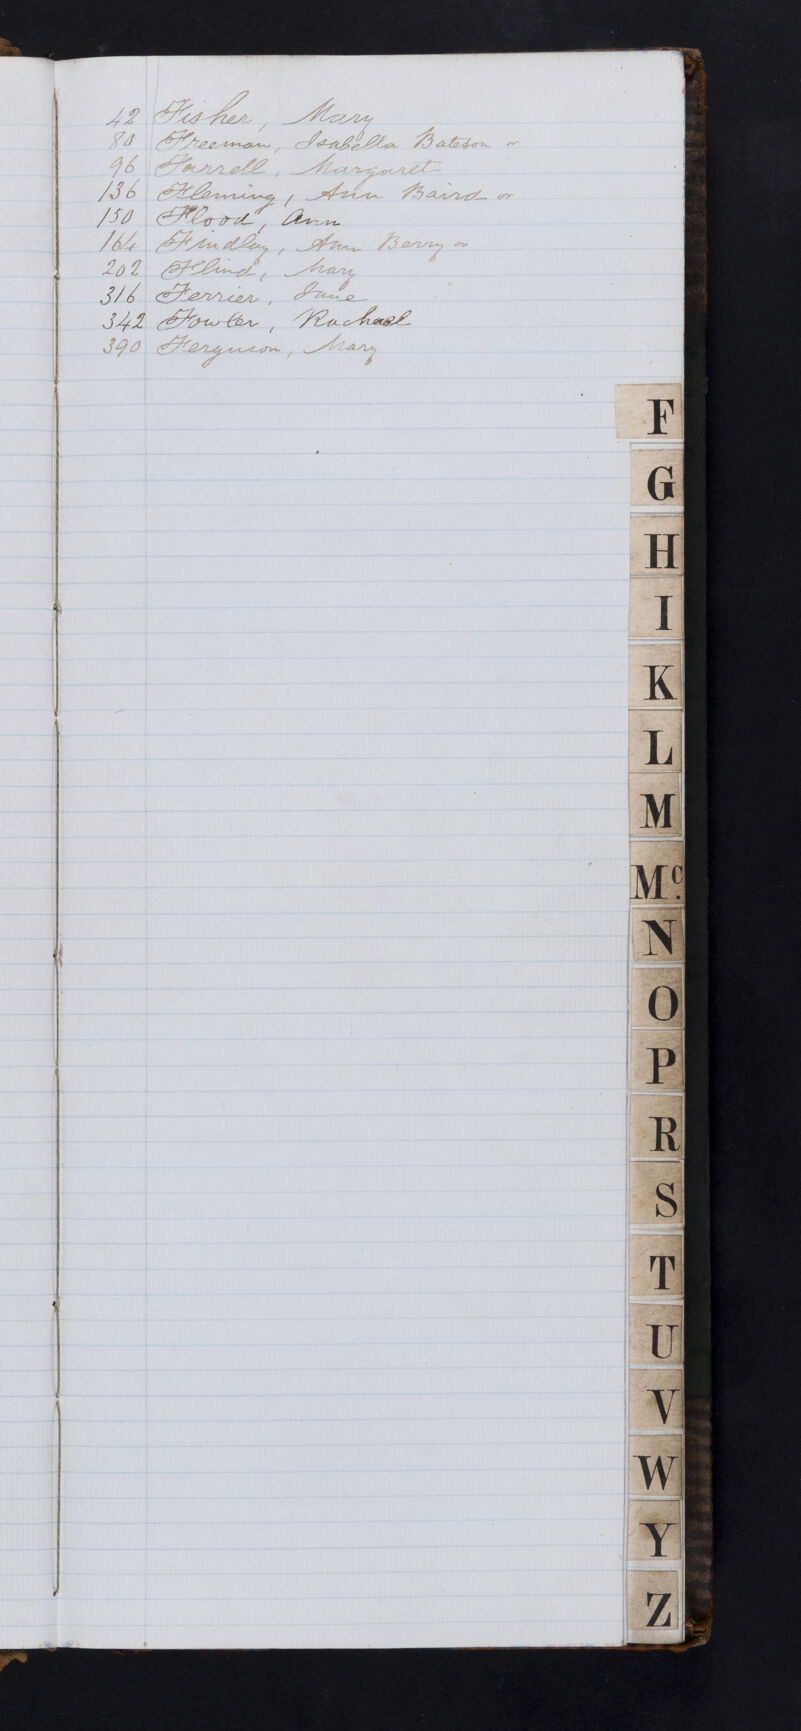 42 Fisher, Mary
80 Freeman, Isabella Bateson or
96 Farrell, Margaret
136 Fleming, Ann Baird or
150 Flood, Ann
164 Findlay, Ann Berry or
202 Flind, Mary
316 Ferrier, Jane
342 Fowler, Rachael
390 Ferguson, Mary
F
G
H
I
K
L
M
Mc.
N
O
P
R
S
T
U
V
W
Y
Z